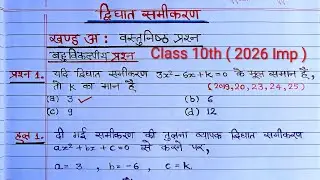 द्विघात समीकरण
खण्ड अ : वस्तुनिष्ठ प्रश्न
बहुविकल्पीय प्रश्न Class 10th ( 2026 Imp )
प्रश्न 1. यदि द्विघात समीकरण 3x²-6x+k=0 के मूल समान हैं,
तो K का मान है (2019,20,23,24,25)
(a) 3 ✓ (b) 6
(c) 9 (d) 12
हल 1. दी गई समीकरण की तुलना व्यापक द्विघात समीकरण
ax²+bx+c=0 से करने पर,
a=3, b=-6, c=k.